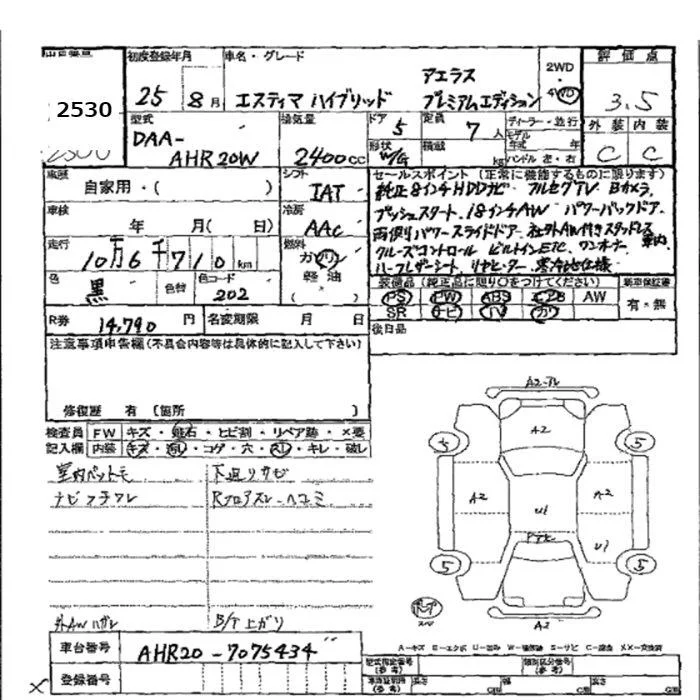 出品番号 初度登録年月 車名・グレード 評価点
2530
25 8月 エスティマ ハイブリッド アエラス プレミアムエディション 2WD・4WD 3.5
型式 排気量 ドア 定員 ディーラー・並行 外装 内装
DAA-AHR20W 2400cc 5 7人 モデル 年式 年 C C
形状 W/G 積載 kg ハンドル 左・右
車歴 シフト セールスポイント(正常に機能するものに限ります)
自家用・( ) IAT 純正8インチHDDナビ フルセグTV Bカメラ
車検 冷房 プッシュスタート、18インチAW パワーバックドア
年 月( 日) AAC 両側パワースライドドア 社外AW付きスタッドレス
走行 燃料 クルーズコントロール ビルトインETC ワンオーナー
10万6千710km ガソリン ハーフレザーシート リヤヒーター 寒冷地仕様
軽油
色 黒 色替 色コード 202 装備品(純正品に限り○をつけてください) 新車保証書
PS PW ABS エアB AW 有・無
R券 14,790円 名変期限 月 日 SR ナビ TV カワ
注意事項申告欄(不具合内容等は具体的に記入して下さい) 後日品
修復歴 有 〔箇所
検査員 FW キズ・飛石・ヒビ割・リペア跡・X要
記入欄 内装 キズ・汚レ・コゲ・穴・スレ・キレ・破レ
室内ペットモ 下廻リサビ
ナビフチワレ Rフロアスレ・ヘコミ
外AWハガレ B/T上ガリ
A2
A2
5 5
A2 U1 A2
U1
5 5
A2
A-キズ E-エクボ U-凹み W-補修跡 S-サビ C-腐食 XX-交換済
車台番号 AHR20-7075434
登録番号
型式指定番号(参考) 類別区分番号(参考)
長さ 幅 高さ